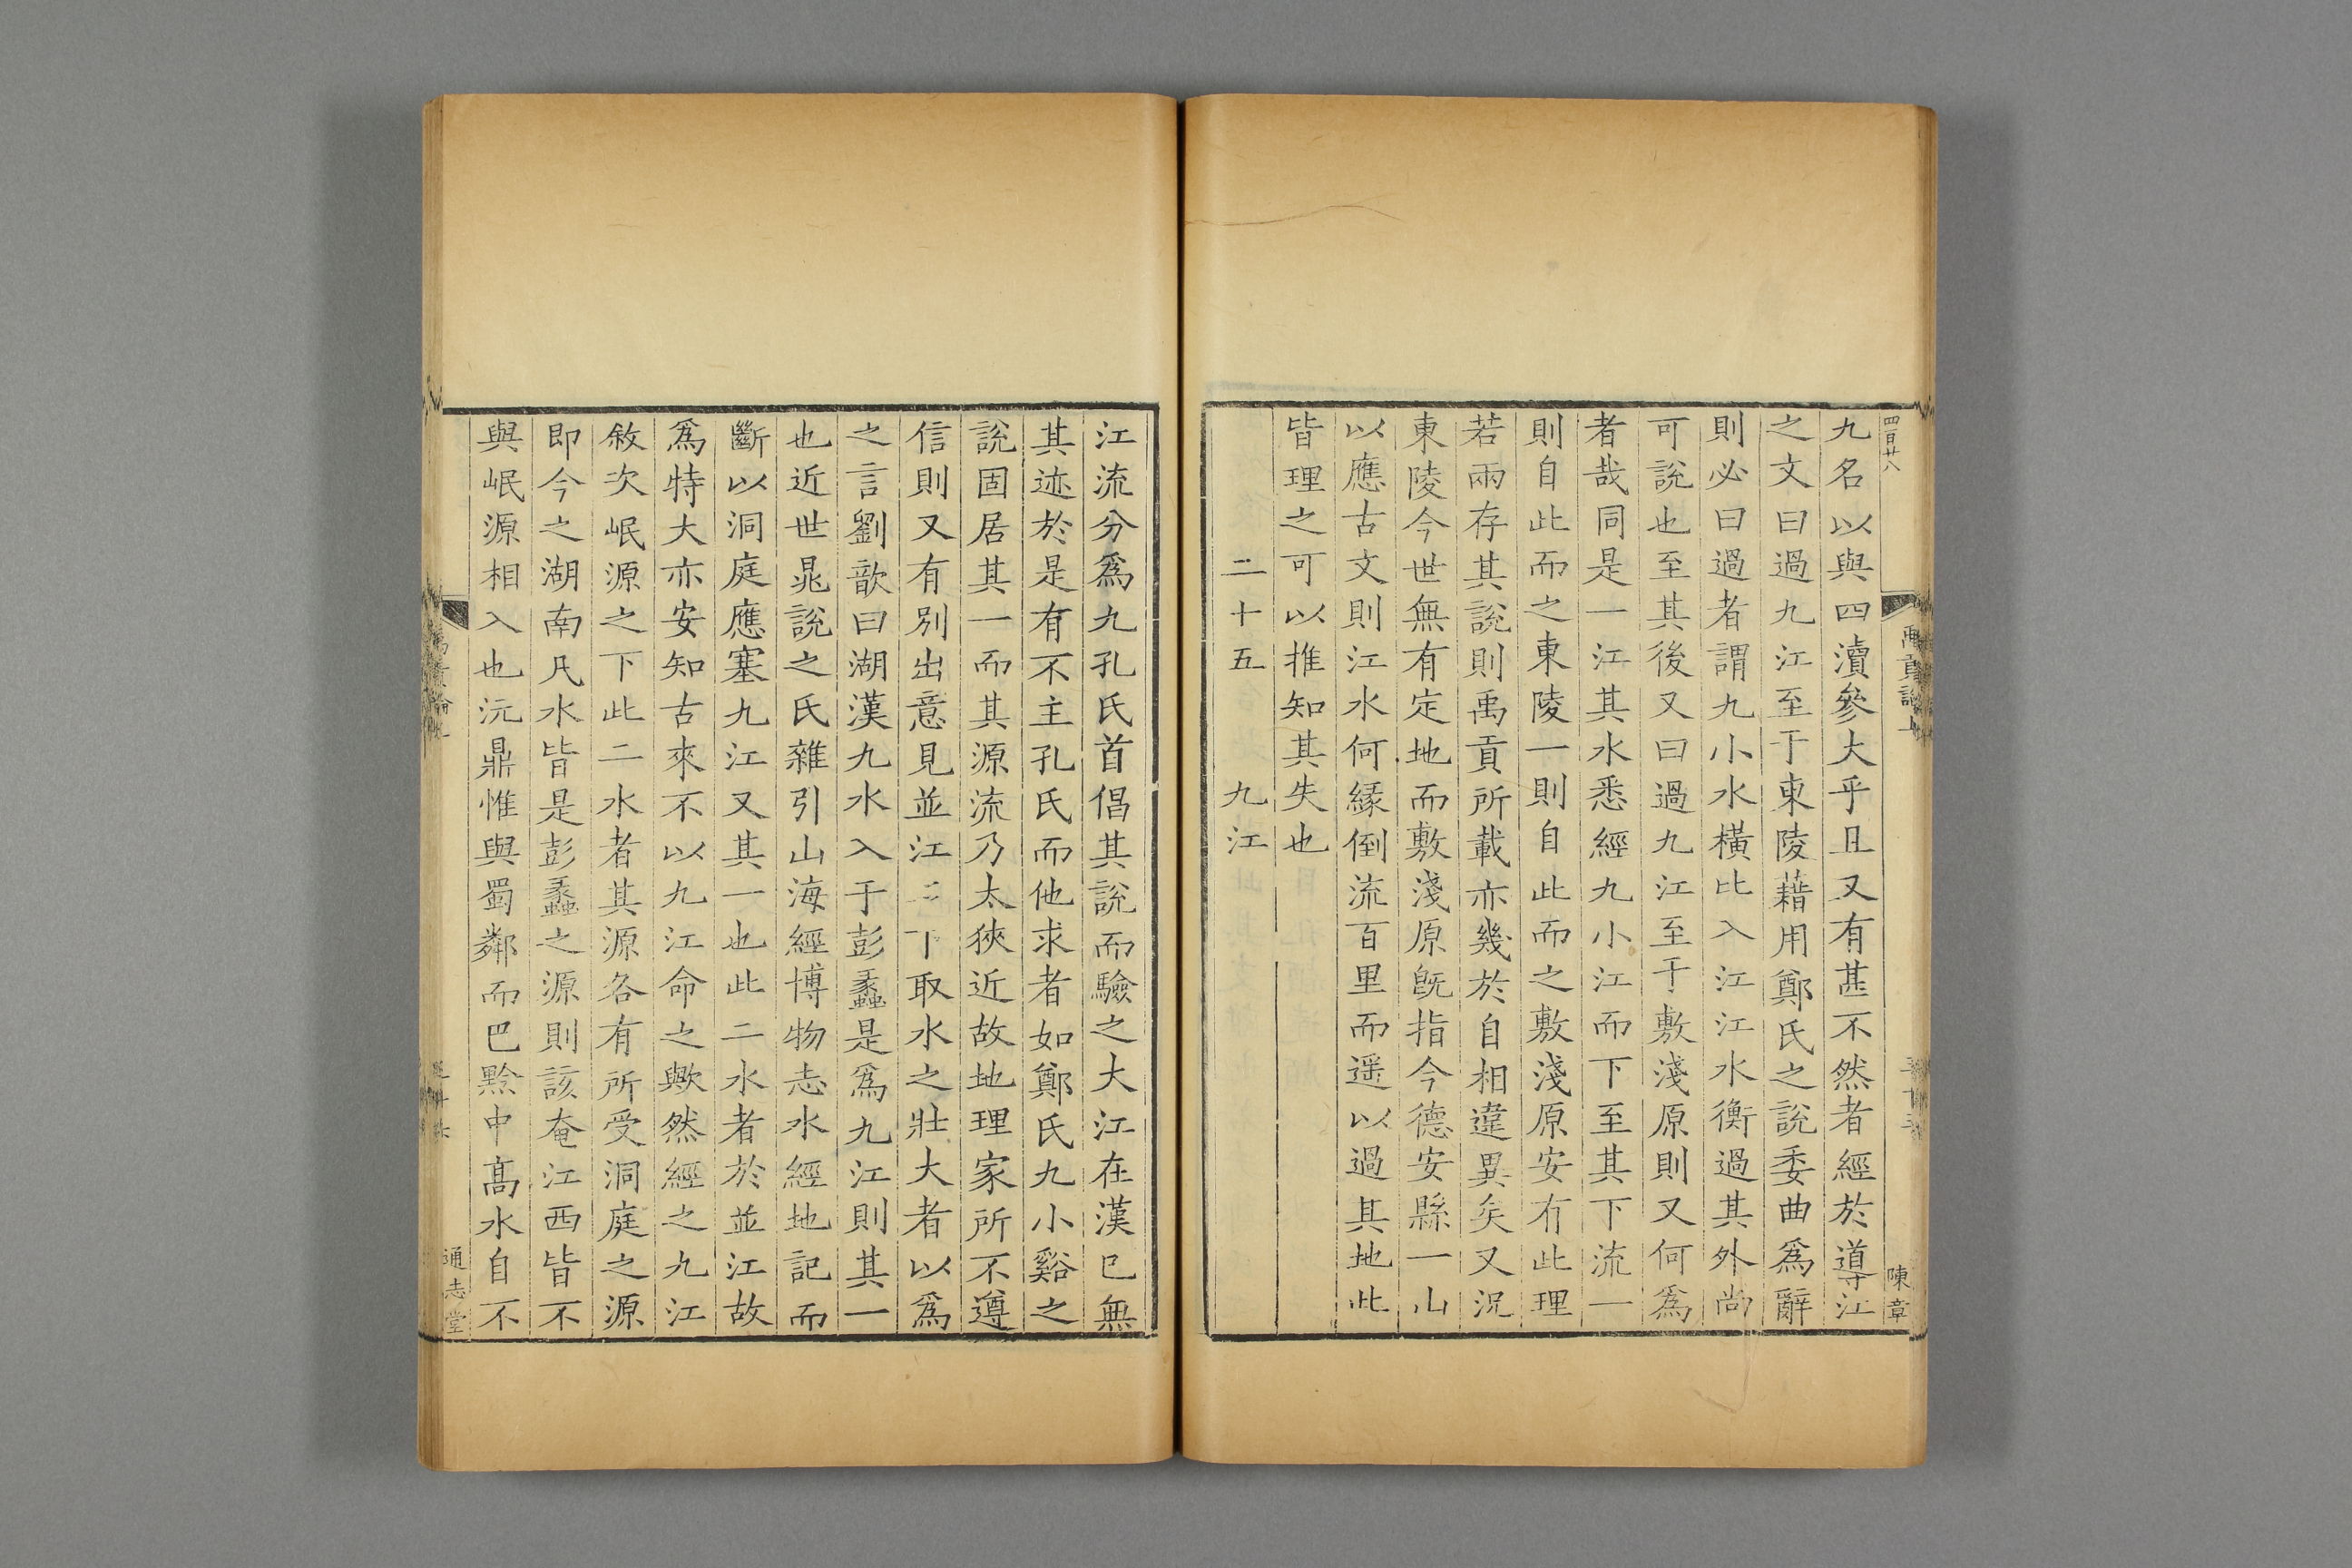 四百廿八
陳章
九名以與四瀆參大乎且又有甚不然者經於導江
之文曰過九江至于東陵藉用鄭氏之說委曲爲辭
則必曰過者謂九小水橫比入江江水衡過其外尚
可說也至其後又曰過九江至于敷淺原則又何爲
者哉同是一江其水悉經九小江而下至其下流一
則自此而之東陵一則自此而之敷淺原安有此理
若兩存其說則禹貢所載亦幾於自相違異矣又況
東陵今世無有定地而敷淺原旣指今德安縣一山
以應古文則江水何緣倒流百里而遥以過其地此
皆理之可以推知其失也
二十五 九江
江流分爲九孔氏首倡其說而驗之大江在漢巳無
其迹於是有不主孔氏而他求者如鄭氏九小谿之
說固居其一而其源流乃太狹近故地理家所不遵
信則又有別出意見並江上下取水之壯大者以爲
之言劉歆曰湖漢九水入于彭蠡是爲九江則其一
也近世晁說之氏雜引山海經博物志水經地記而
斷以洞庭應塞九江又其一也此二水者於並江故
爲特大亦安知古來不以九江命之歟然經之九江
敘次岷源之下此二水者其源各有所受洞庭之源
即今之湖南凡水皆是彭蠡之源則該奄江西皆不
與岷源相入也沅鼎惟與蜀鄰而巴黔中髙水自不
通志堂